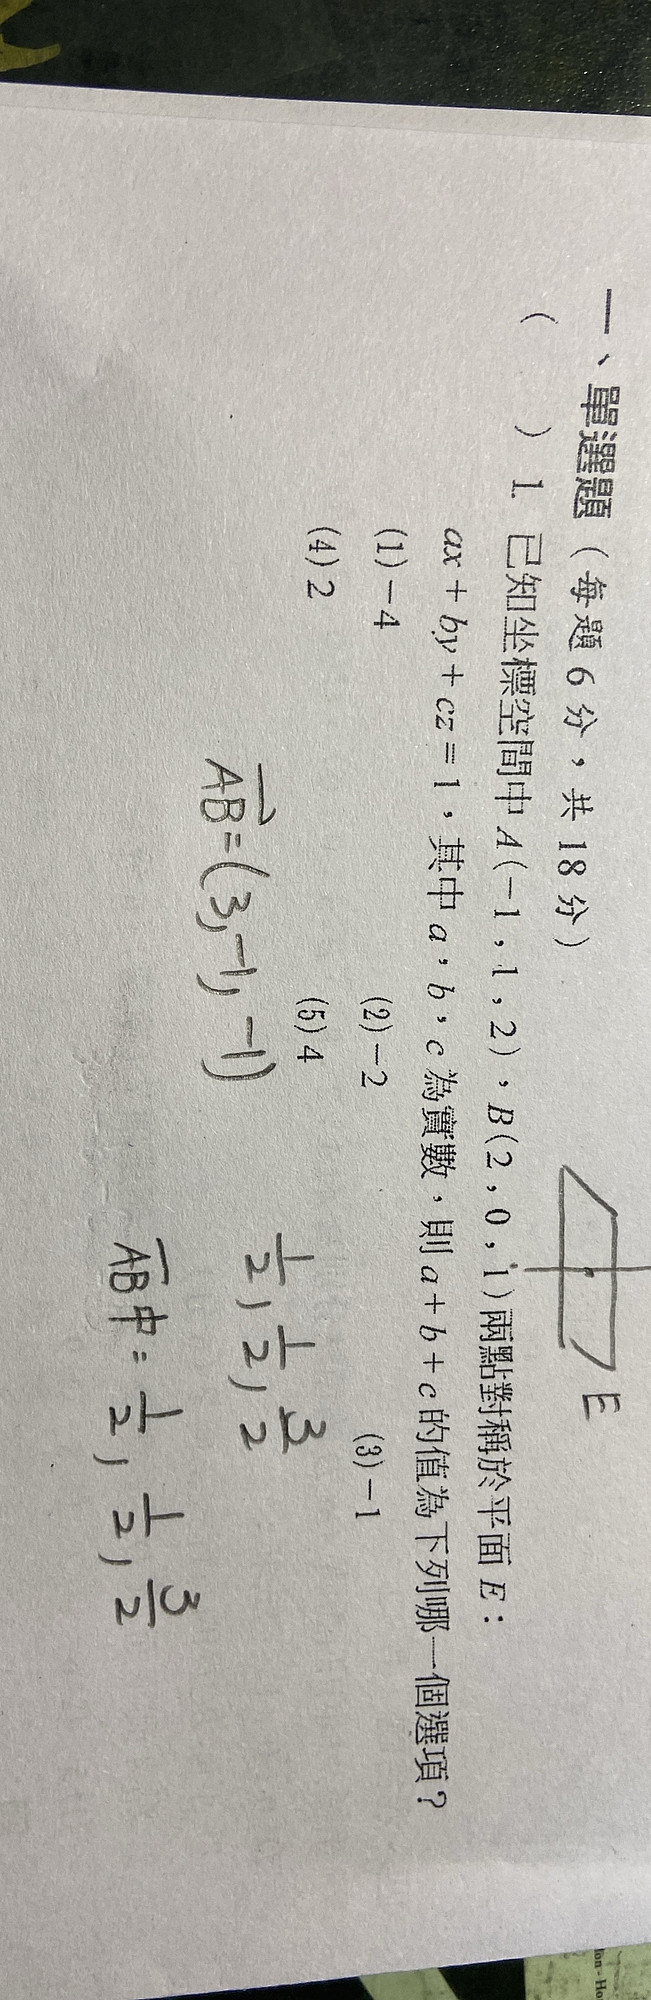 一、單選題（每題6分，共18分）
（　）1. 已知坐標空間中A(－1，1，2)、B(2，0，1)兩點對稱於平面E：
ax＋by＋cz＝1，其中a，b，c為實數，則a＋b＋c的值為下列哪一個選項？
(1)－4 (2)－2 (3)－1
(4) 2 (5) 4
E
AB=(3,-1,-1)
1/2, 1/2, 3/2
AB中= 1/2, 1/2, 3/2